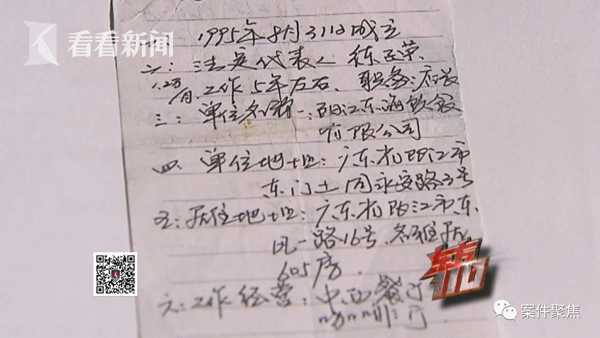 看看新闻
1995年8月31日成立
二：法定代表人 练正荣
工作5年左右. 职务：店长
三：单位名称一：阳江东海饮食
有限公司
四、单位地址：广东省阳江市
东门 永安路3号
五：居住地址：广东省阳江市东
风一路16号
605房.
六：工作经营：中西餐
案件聚焦